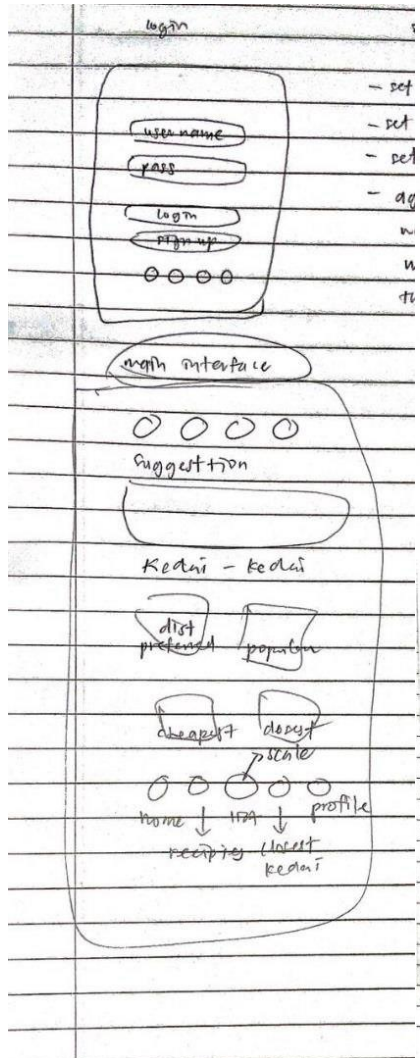 login
- set
- set
- set
user name
pass
login
sign up
main interface
suggesttion
Kedai - kedai
preferred
popular
cheapest
closest
scale
home
profile
recipies
closest
kedai